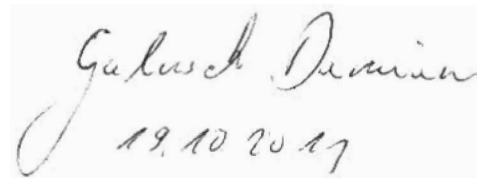 Galusch Damian
19.10.2019